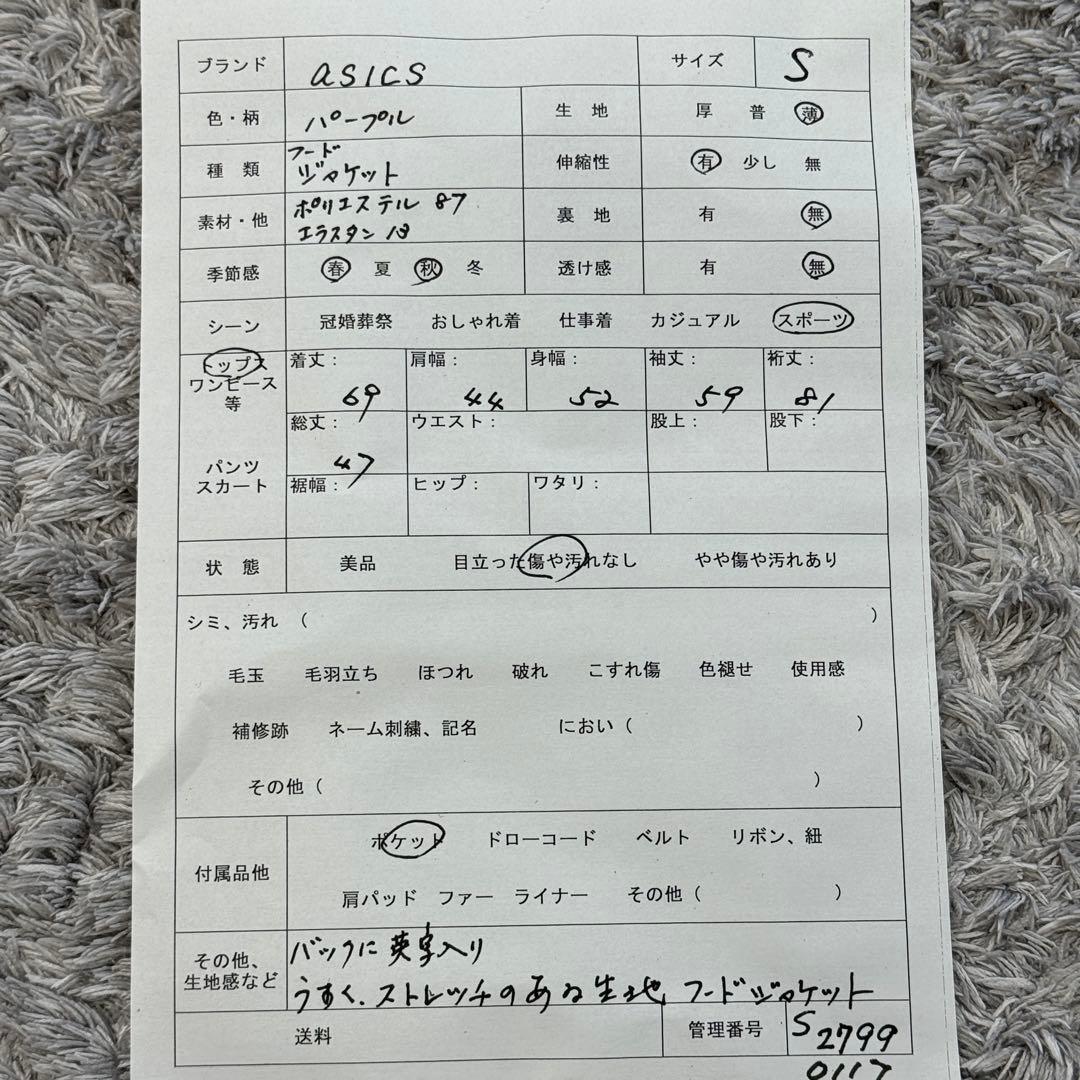 ブランド asics サイズ S
色・柄 パープル 生地 厚 普 薄
種類 フード
ジャケット 伸縮性 有 少し 無
素材・他 ポリエステル 87
エラスタン 13 裏地 有 無
季節感 春 夏 秋 冬 透け感 有 無
シーン 冠婚葬祭 おしゃれ着 仕事着 カジュアル スポーツ
トップス
ワンピース
等
着丈: 69 肩幅: 44 身幅: 52 袖丈: 59 裄丈: 81
パンツ
スカート
総丈: 47 ウエスト: 股上: 股下:
裾幅: ヒップ: ワタリ:
状態 美品 目立った傷や汚れなし やや傷や汚れあり
シミ、汚れ ( )
毛玉 毛羽立ち ほつれ 破れ こすれ傷 色褪せ 使用感
補修跡 ネーム刺繍、記名 におい ( )
その他 ( )
付属品他 ポケット ドローコード ベルト リボン、紐
肩パッド ファー ライナー その他 ( )
その他、
生地感など
バックに英字入り
うすく、ストレッチのある生地 フードジャケット
送料 管理番号 S2799
0117